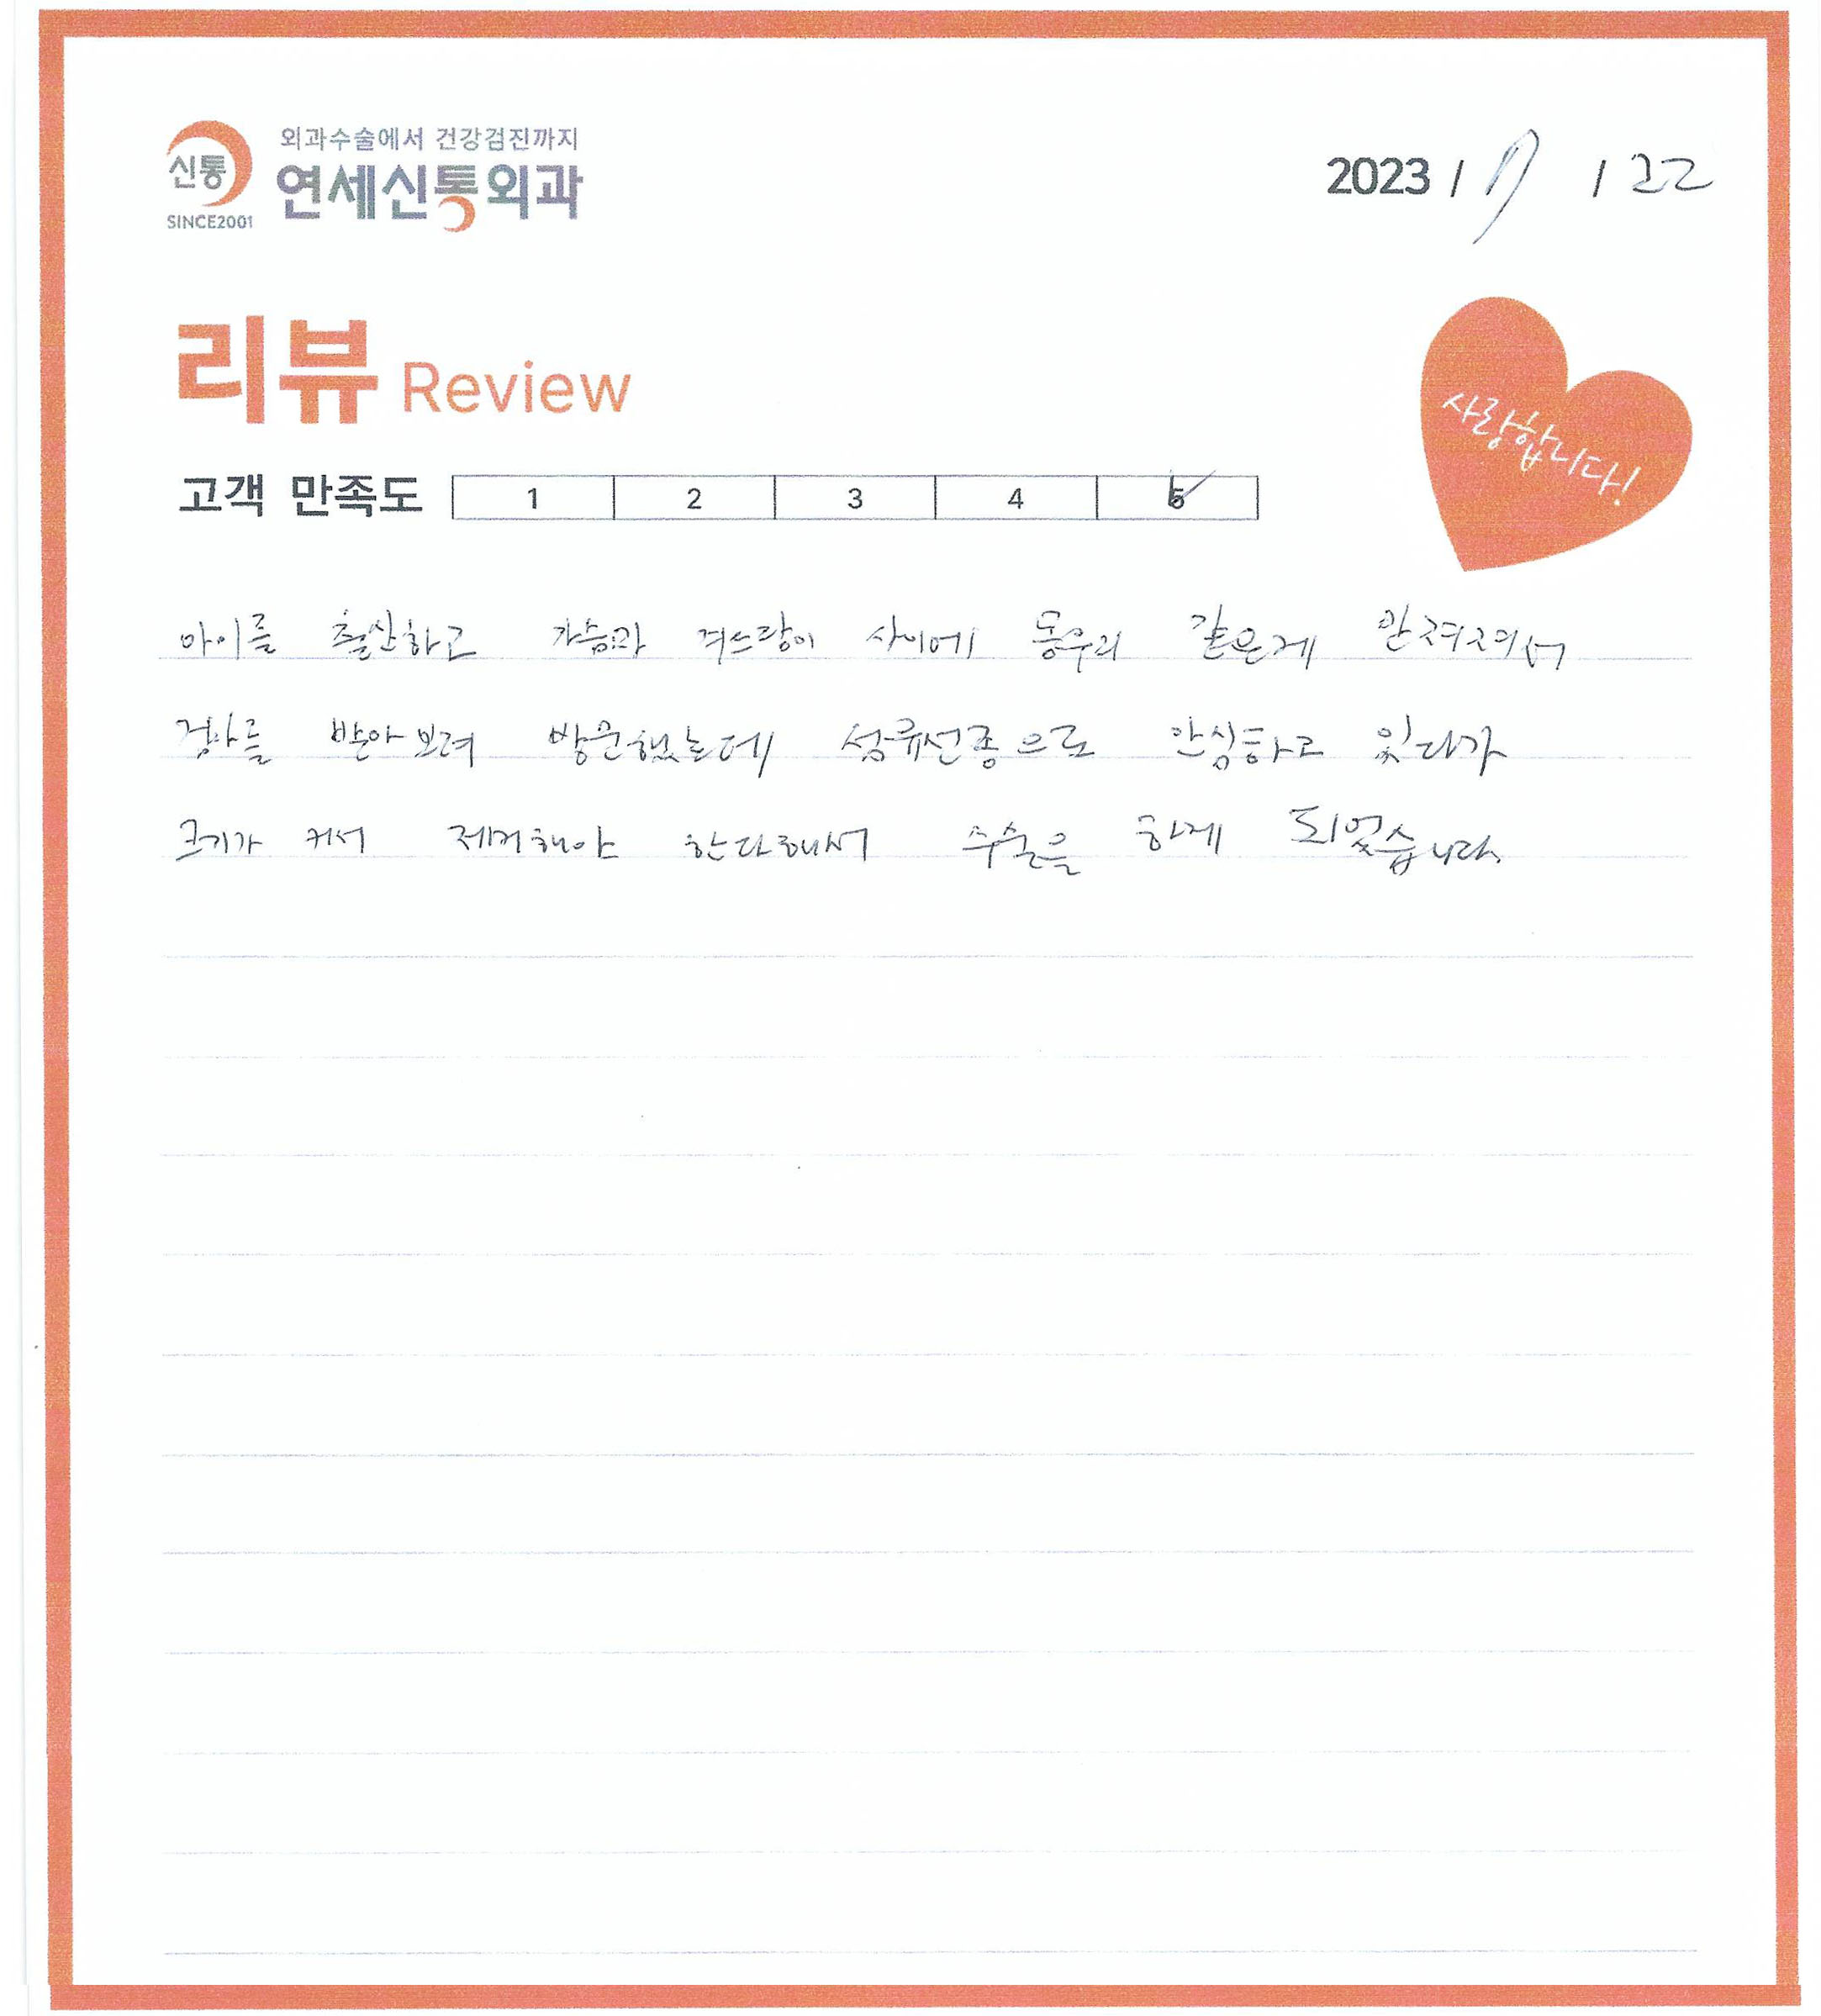 외과수술에서 건강검진까지
신통 연세신통외과
SINCE2001
2023 / 7 / 22
리뷰 Review
사랑합니다!
고객 만족도 1 2 3 4 5
아이를 출산하고 가슴과 겨드랑이 사이에 몽우리 같은게 만져져서
검사를 받아보려 방문했는데 섬유선종으로 안심하고 있다가
크기가 커서 제거해야 한다해서 수술을 하게 되었습니다.